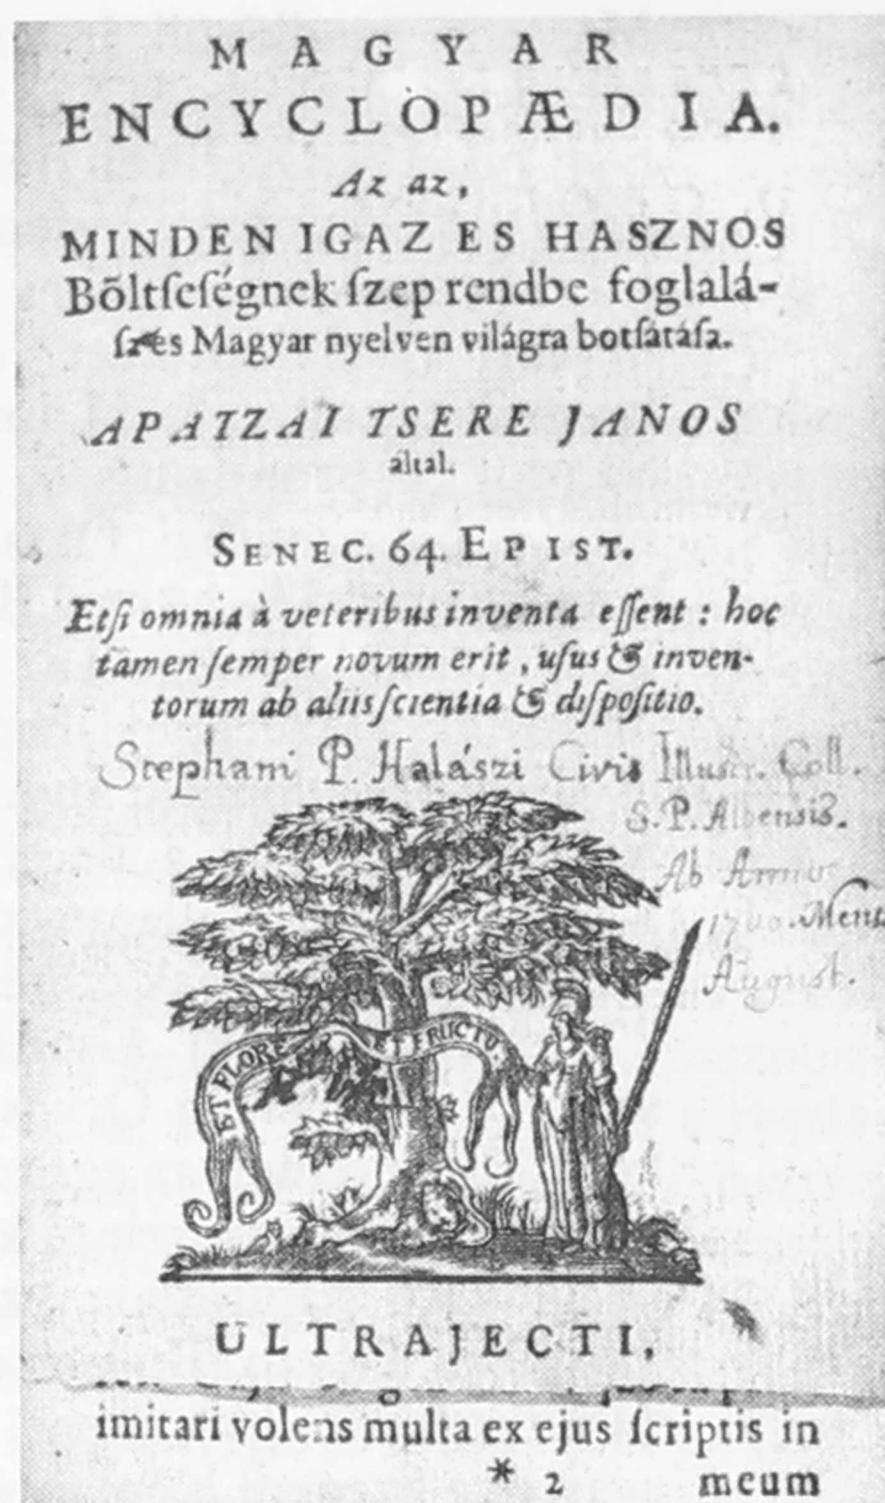 MAGYAR
ENCYCLOPÆDIA.
Az az,
MINDEN IGAZ ES HASZNOS
Bőltſeſégnek ſzep rendbe foglalá-
es Magyar nyelven világra botſátáſa.
APATZAI TSERE JANOS
által.
SENEC. 64. EPIST.
Etſi omnia à veteribus inventa eſſent : hoc
tamen ſemper novum erit, uſus & inven-
torum ab aliis ſcientia & diſpoſitio.
Stephani P. Halászi Civis Illustr. Coll.
S.P. Albensis.
Ab Anno
Mens.
August.
ET FLORE ET FRUCTU.
ULTRAJECTI,
imitari volens multa ex ejus ſcriptis in
* 2 meum